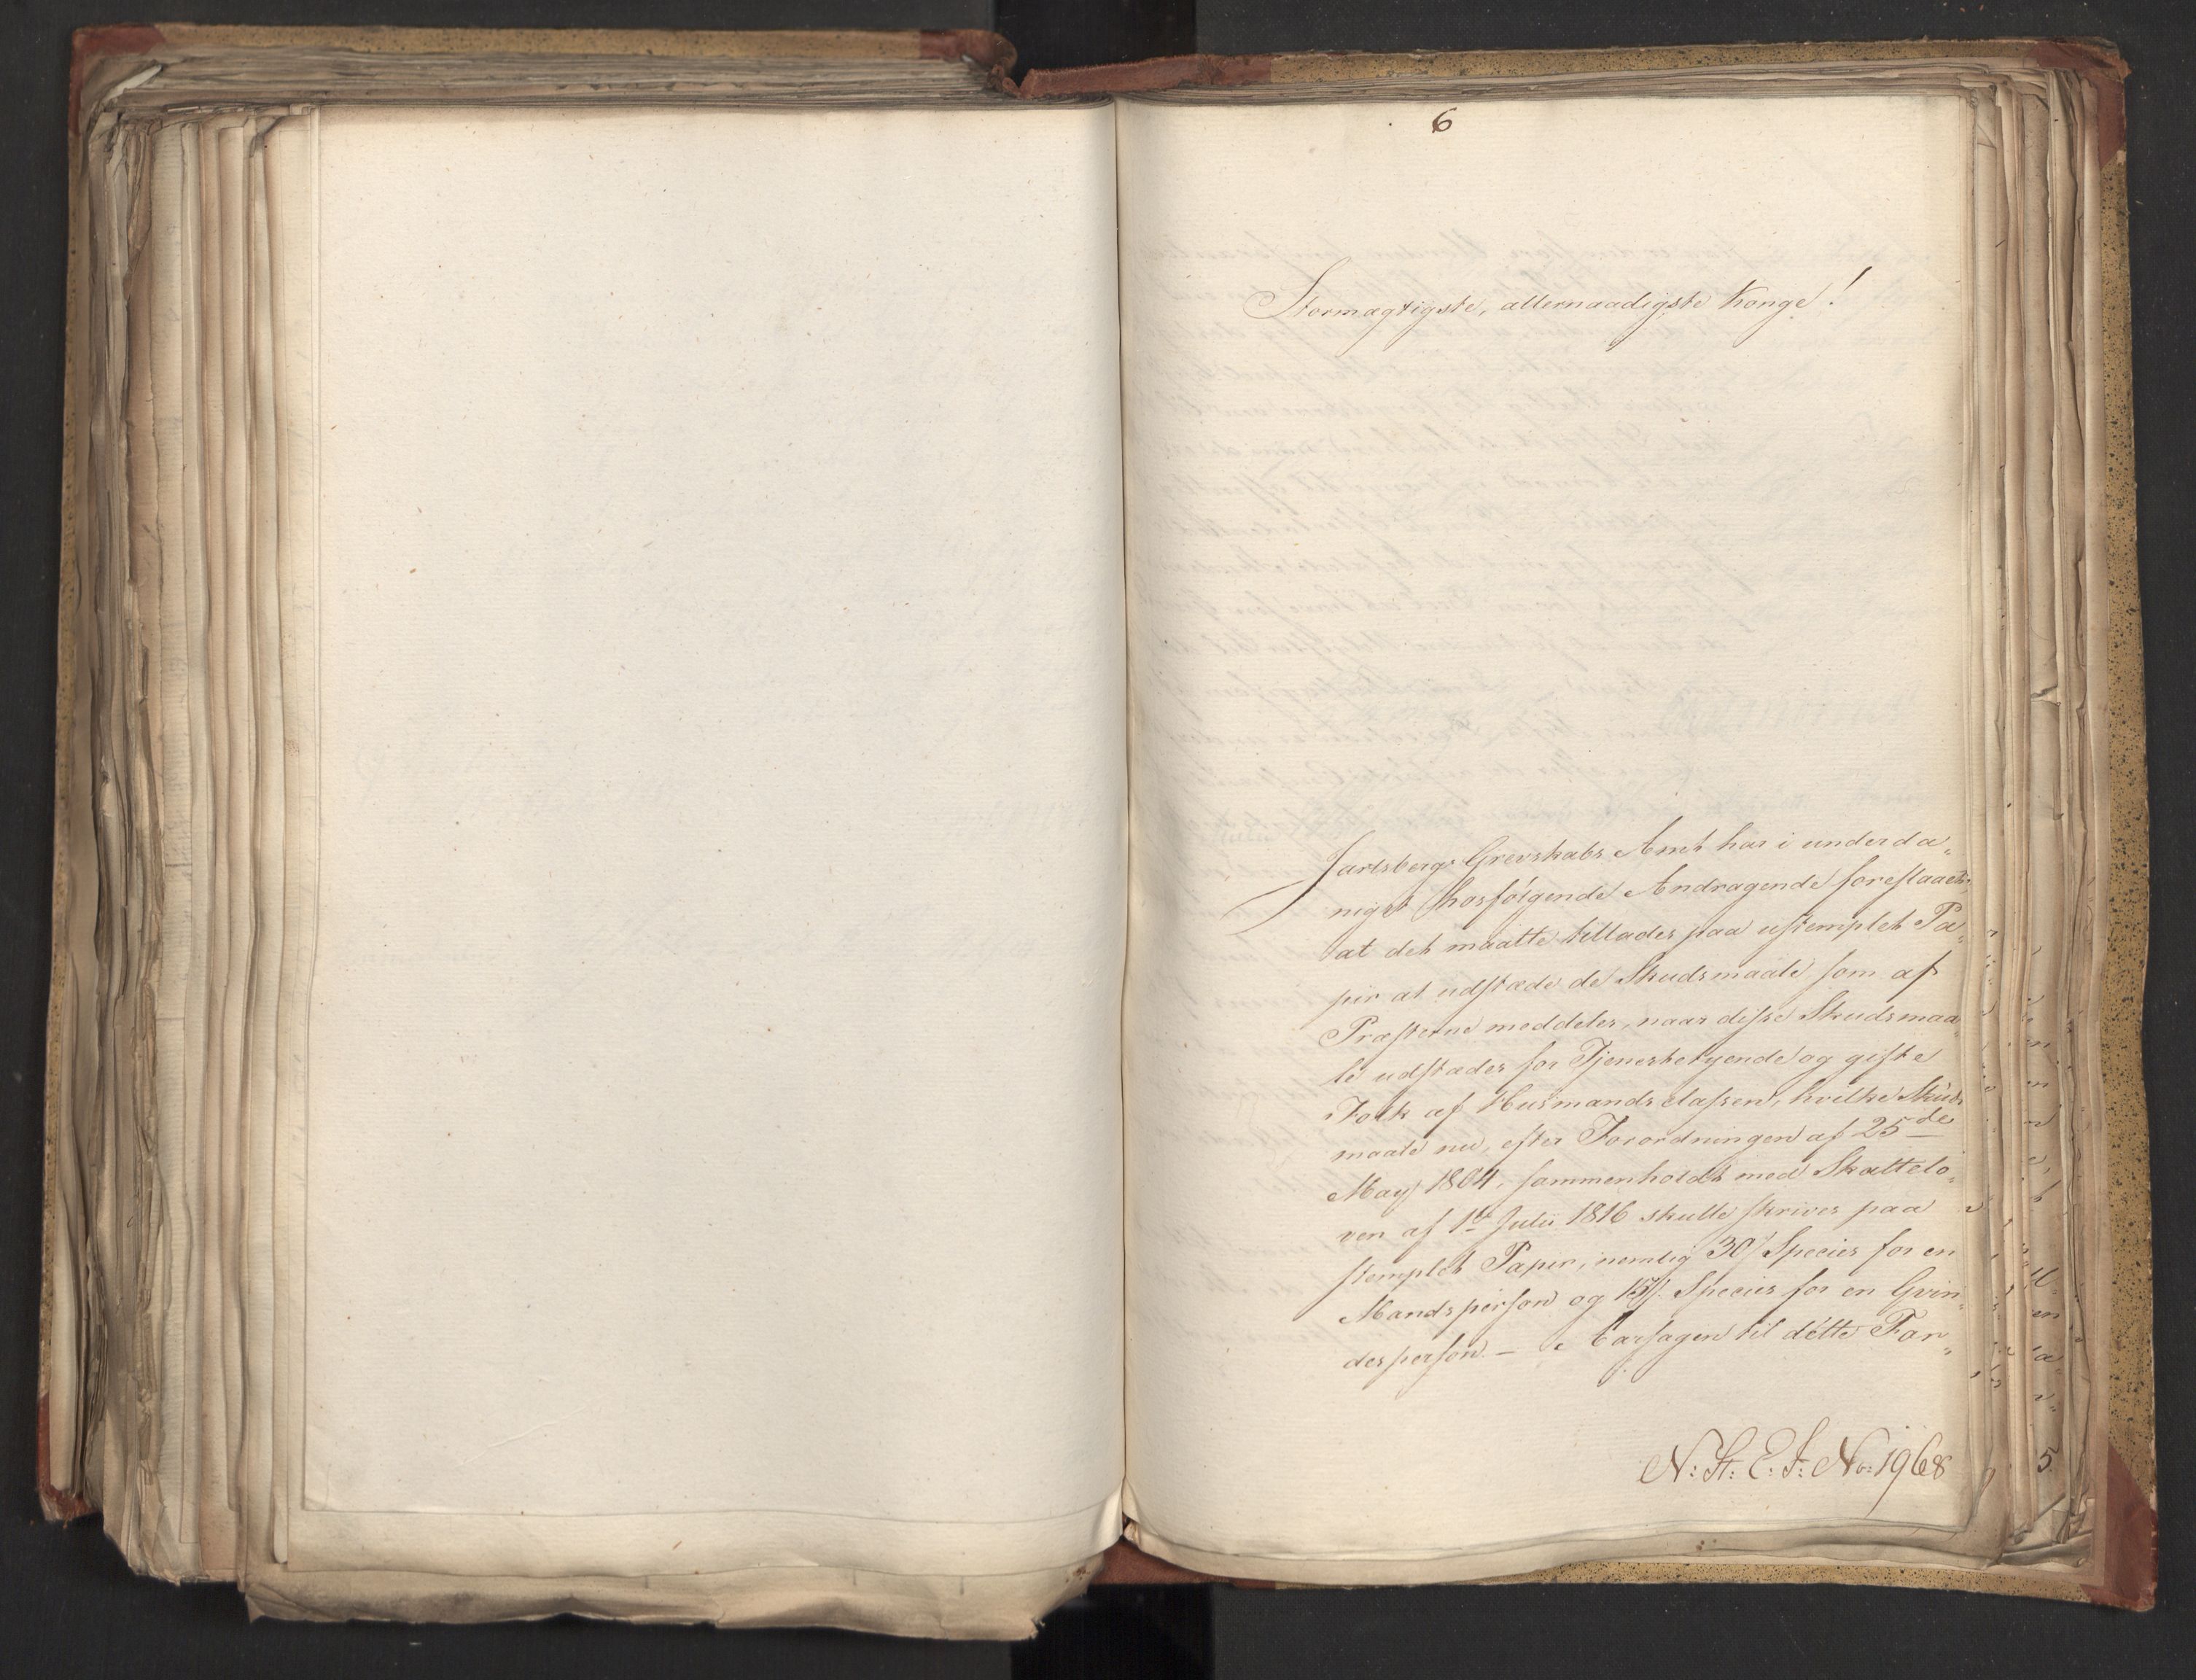 6
Stormægtigste, allernaadigste Konge!
Jarlsbergs Grevskabs Amt har i underda„
nigst hosfølgende Andragende foreslaaet,
at det maatte tillades paa ustemplet Pa„
pir at udstæde de Skudsmaale som af
Præsterne meddeles, naar disse Skudsmaa„
le udstædes for Tjenestetyende og gifte
Folk af Husmandsclassen, hvilke Skuds„
maale nu, efter Forordningen af 25de
May 1804, sammenholdt med Skattelo„
ven af 1ste Julii 1816 skulle skrives paa
stemplet Papir, nemlig 30 s Species for en
Mandsperson og 15 s. Species for en Qvin„
desperson. — Aarsagen til dette For„
N: St: E: J: No: 1968
5